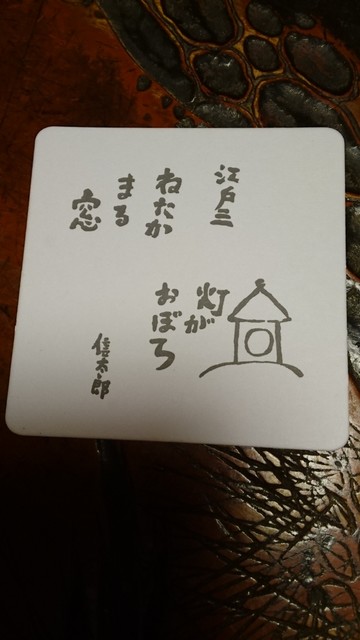 江戸三
ねたか
まる
窓
灯が
おぼろ
信太郎